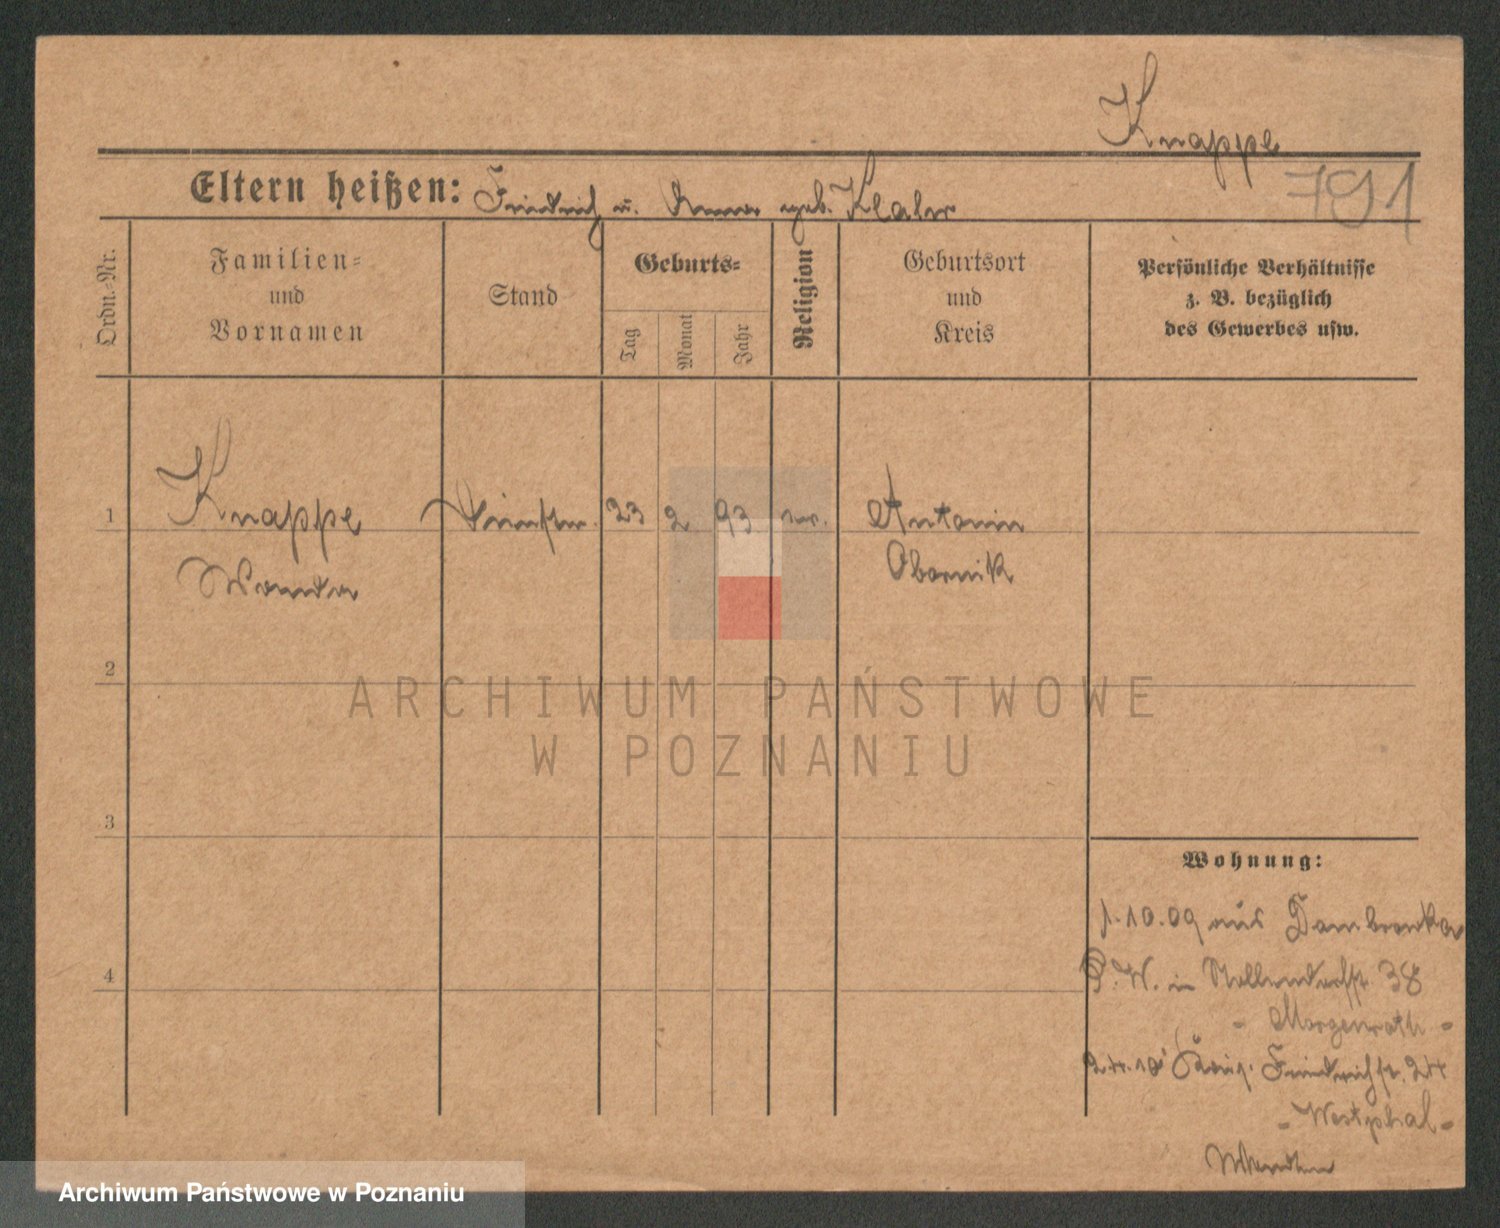 Knappe
791
Eltern heißen: Friedrich u. Anna geb. Klaber
Ordn.-Nr.
Familien-
und
Vornamen
Stand
Geburts-
Tag
Monat
Jahr
Religion
Geburtsort
und
Kreis
Persönliche Verhältnisse
z. B. bezüglich
des Gewerbes usw.
1
Knappe
Wanda
23
2
93
ev.
Antonin
Obornik
2
3
4
Wohnung:
1.10.09 aus Dombrowka
P. W. in Nollendorfstr. 38
- Morgenroth -
Friedrichstr. 24
- Westphal -
ARCHIWUM PAŃSTWOWE
W POZNANIU
Archiwum Państwowe w Poznaniu